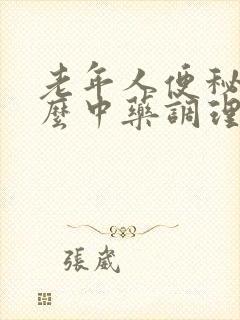 老年人便秘
麼中藥調理
張崴